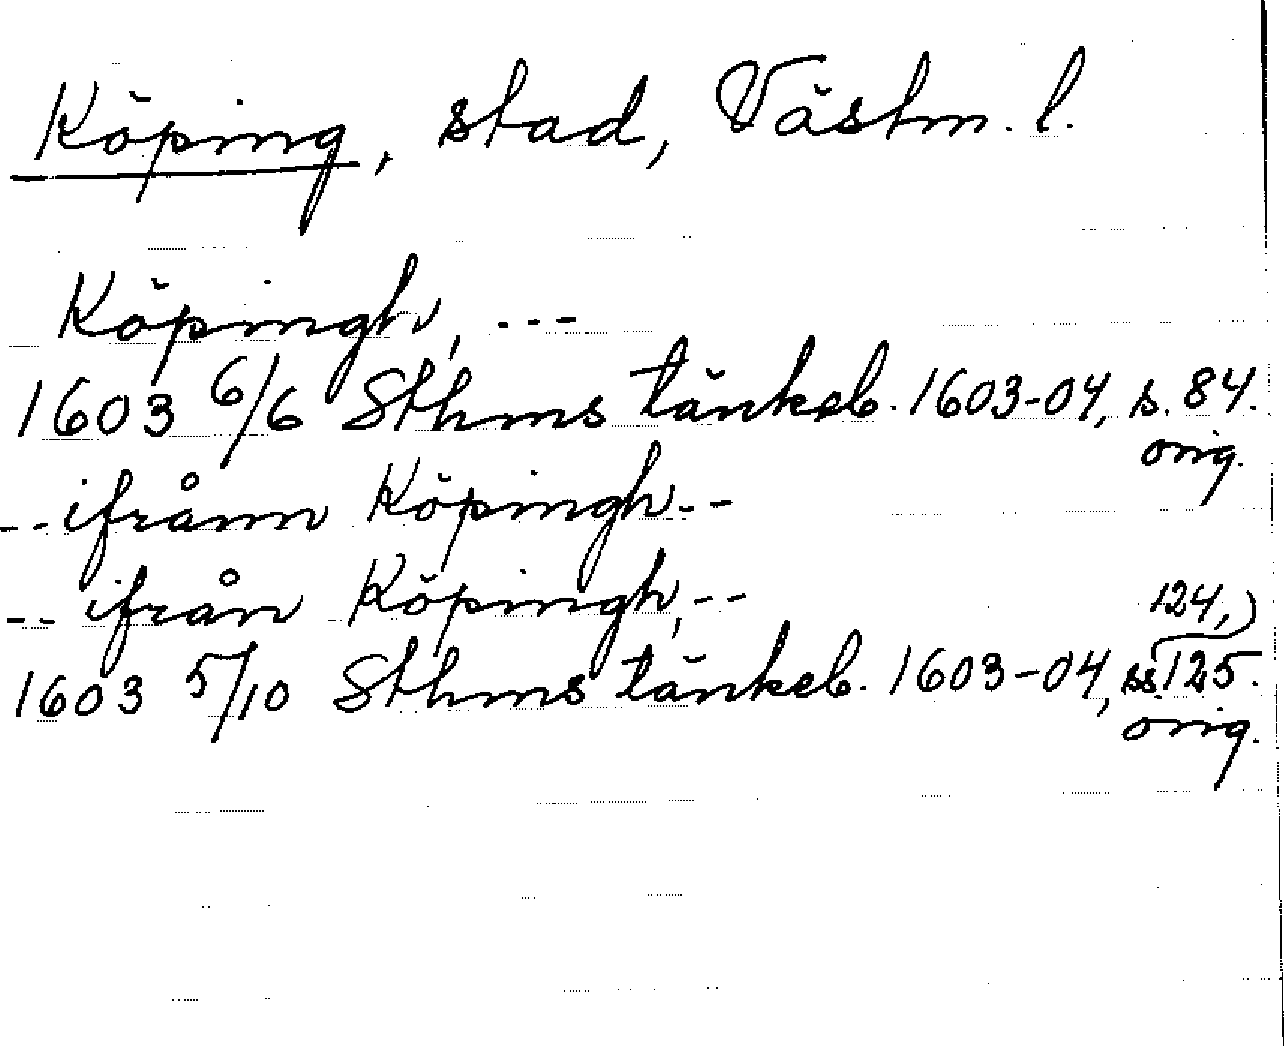 Köping, stad, Västm. l.
Köpingh, ---
1603 6/6 Sthms tänkeb. 1603-04, s. 84.
orig.
-- ifrånn Köpingh --
-- ifrån Köpingh, --
124,
1603 5/10 Sthms tänkeb. 1603-04, ss. 125.
orig.